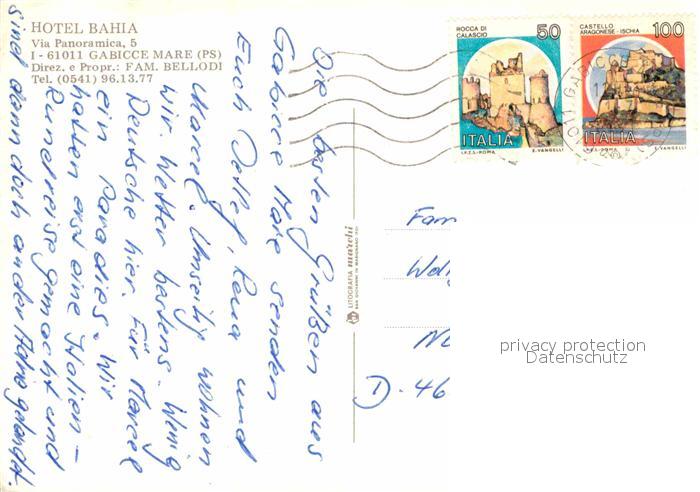 HOTEL BAHIA
Via Panoramica, 5
I - 61011 GABICCE MARE (PS)
Direz. e Propr.: FAM. BELLODI
Tel. (0541) 96.13.77
Die besten Grüßen aus
Gabicce Mare senden
Euch Detlef, Rena und
Marcel. Umseitig wohnen
wir. Wetter bestens. Wenig
Deutsche hier. Für Marcel
ein Paradies. Wir
haben erst eine Italien-
Rundreise gemacht und
sind dann doch an der Adria gelandet.
LITOGRAFIA marchi
SAN GIOVANNI IN MARIGNANO (FO)
ROCCA DI
CALASCIO
50
ITALIA
I.P.Z.S.-ROMA E. VANGELLI
CASTELLO
ARAGONESE - ISCHIA
100
ITALIA
I.P.Z.S.-ROMA E. VANGELLI
Fam
D - 46
privacy protection
Datenschutz